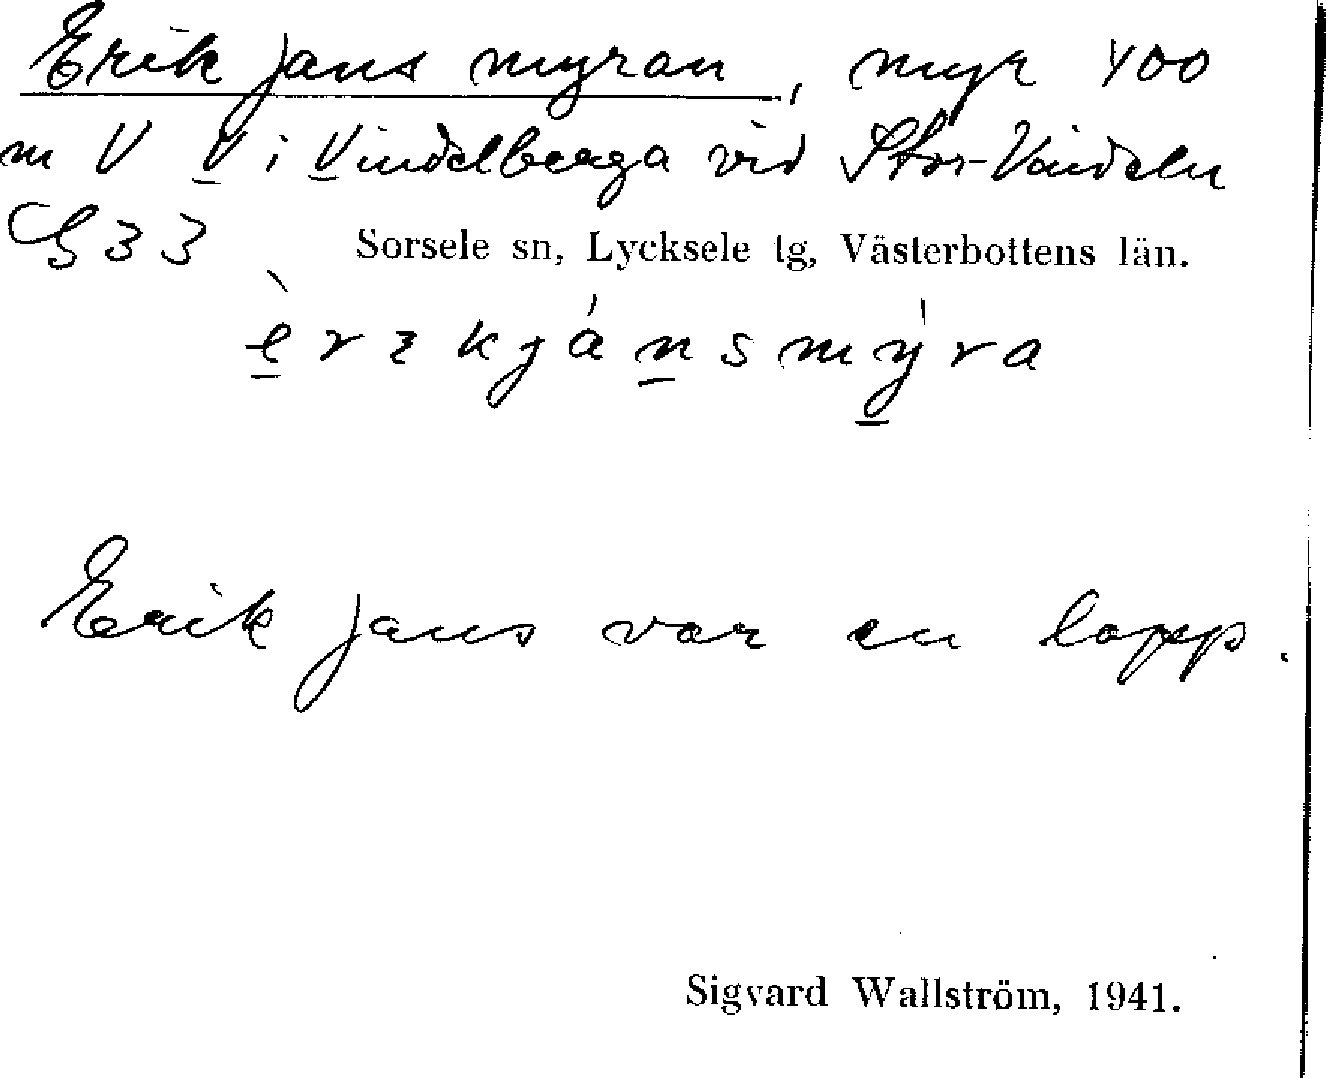 Erik Jans myran, myr 400
m V V i Vindelberga vid Stor-Vindeln
G 33 Sorsele sn, Lycksele tg, Västerbottens län.
èrɩkjánsmýra
Erik Jans var en lapp.
Sigvard Wallström, 1941.